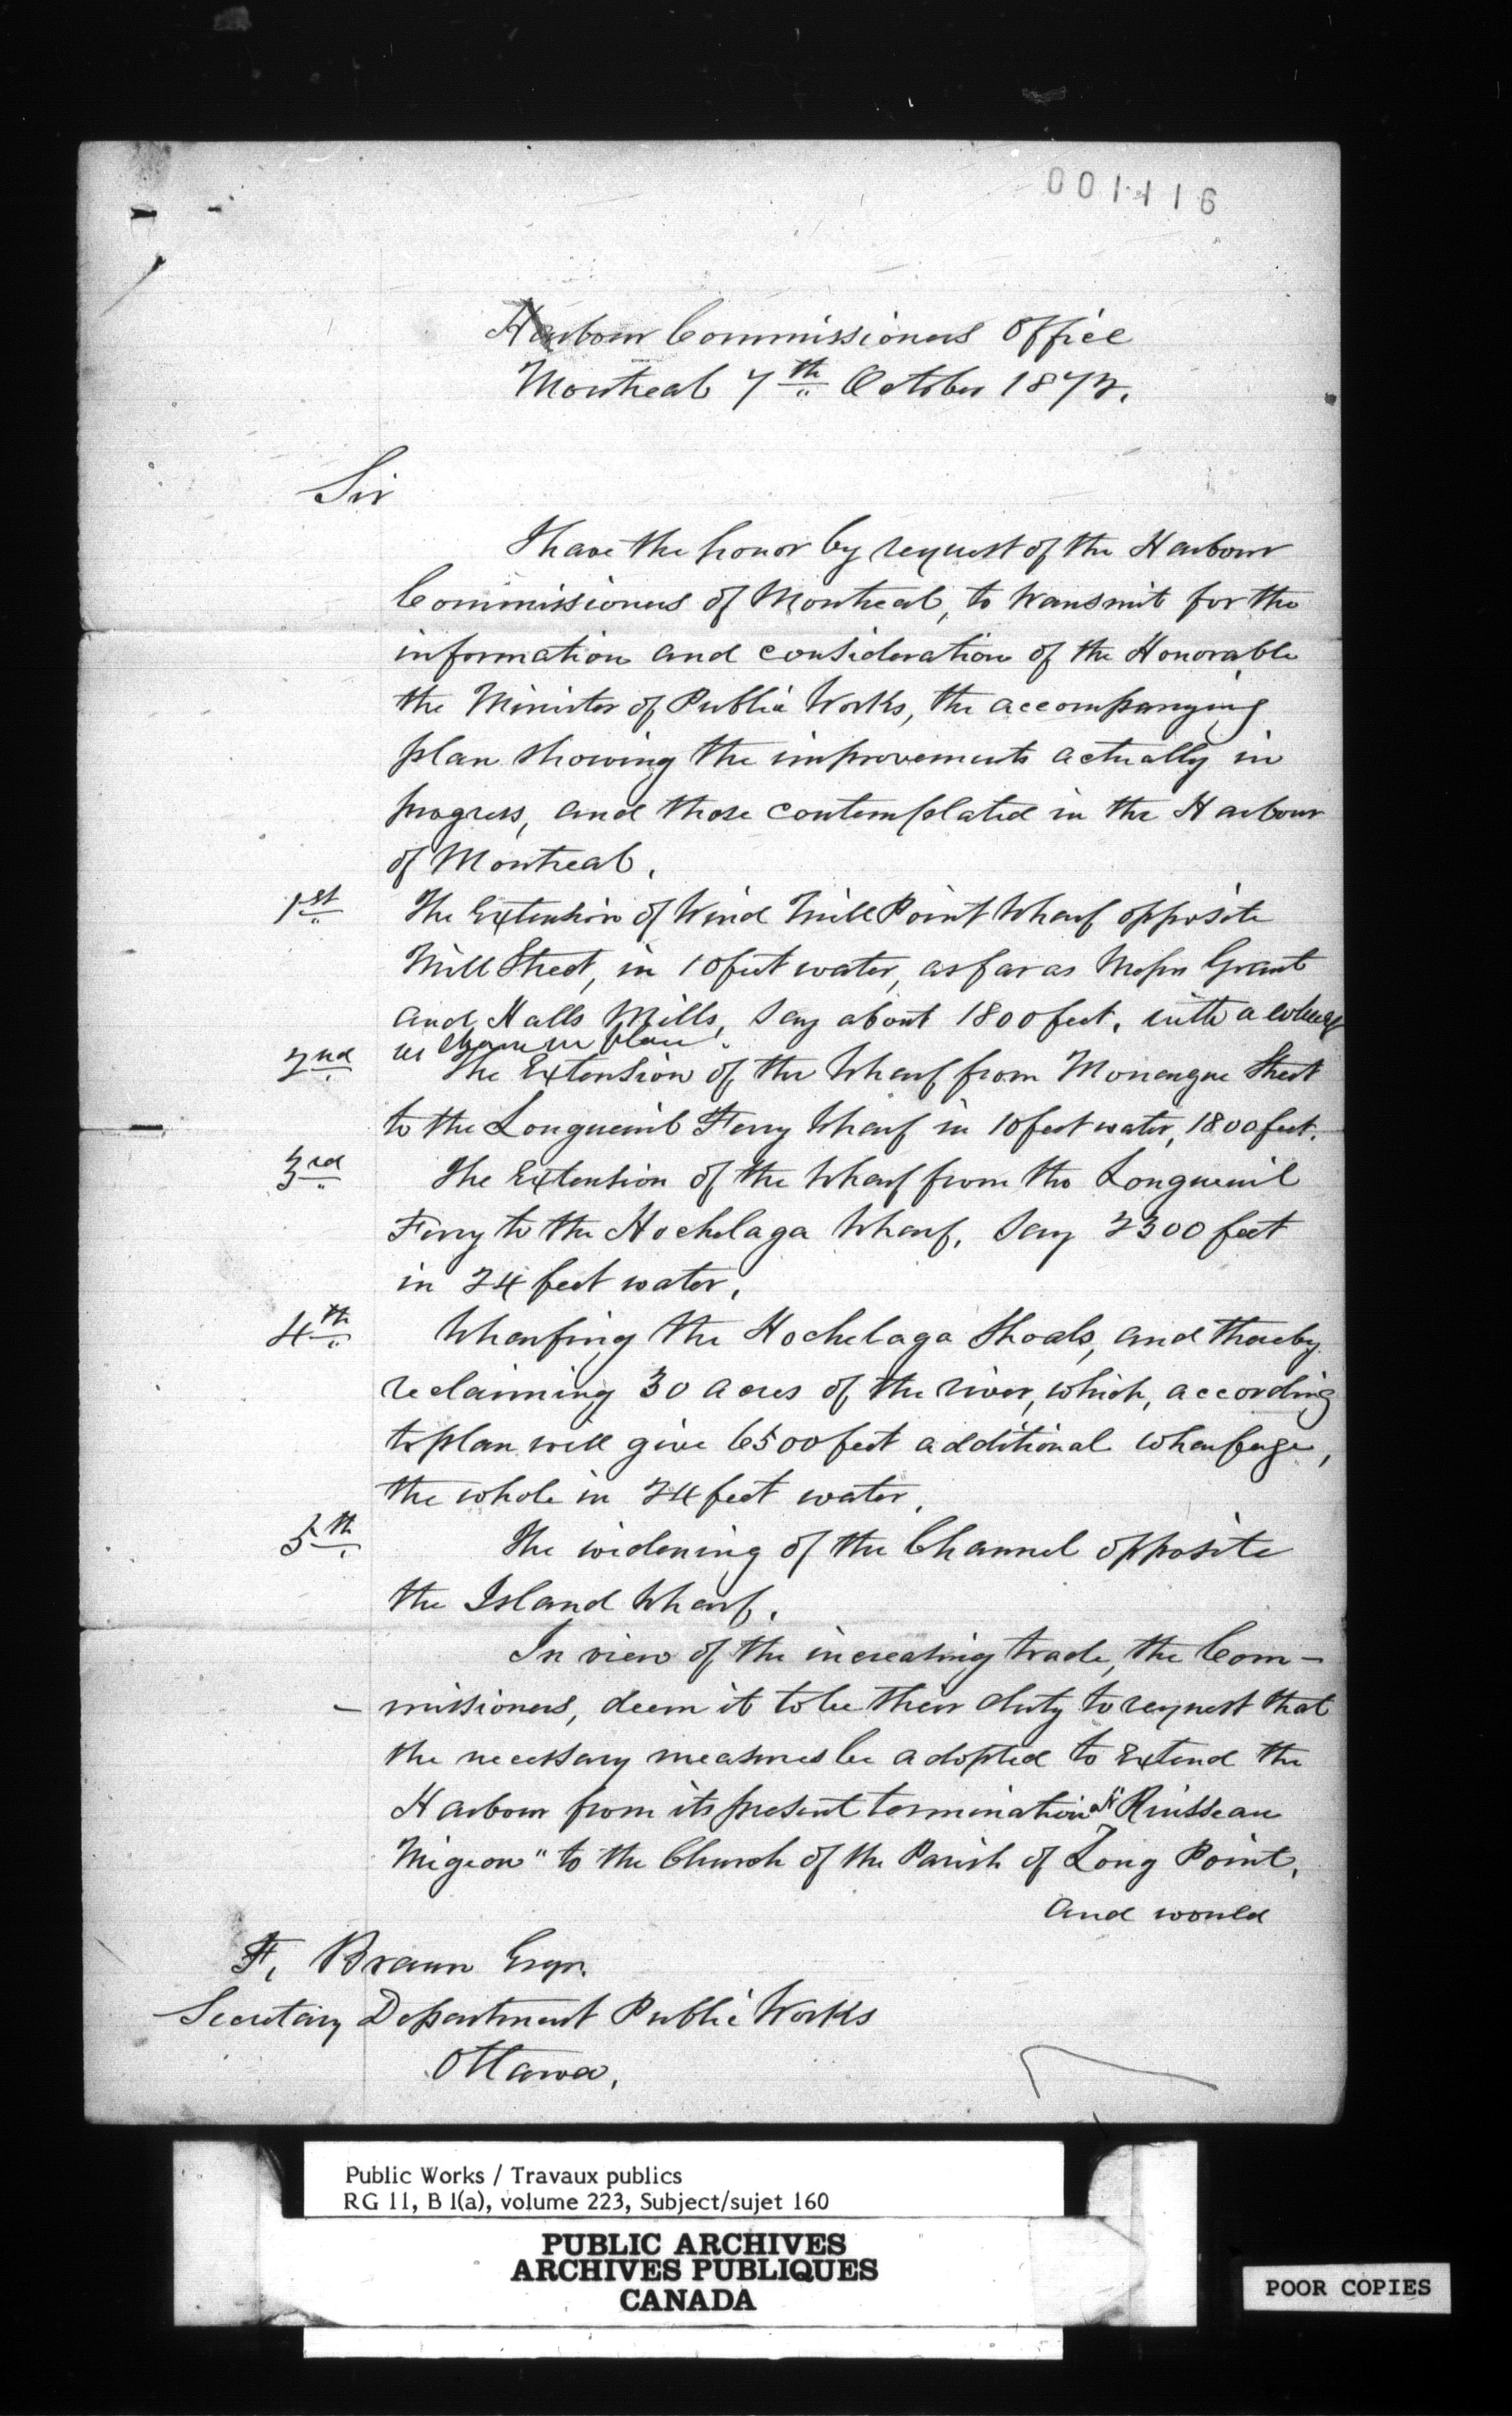 001116
Harbour Commissioners Office
Montreal 7th October 1872.
Sir
I have the honor by request of the Harbour
Commissioners of Montreal, to transmit for the
information and consideration of the Honorable
the Minister of Public Works, the accompanying
plan showing the improvements actually in
progress, and those contemplated in the Harbour
of Montreal.
1st The Extension of Wind Mill Point Wharf opposite
Mill Street, in 10 feet water, as far as Messrs Grant
and Halls Mills, Say about 1800 feet, with a
as shown in plan.
2nd The Extension of the Wharf from Monarque Street
to the Longueuil Ferry Wharf in 10 feet water, 1800 feet.
3rd The Extension of the Wharf from the Longueuil
Ferry to the Hochelaga Wharf, Say 2300 feet
in 24 feet water.
4th Wharfing the Hochelaga Shoals, and thereby
reclaiming 30 acres of the river, which, according
to plan will give 6500 feet additional wharfage,
the whole in 24 feet water.
5th The widening of the Channel opposite
the Island Wharf.
In view of the increasing trade, the Com-
- missioners, deem it to be their duty to request that
the necessary measures be adopted to Extend the
Harbour from its present termination at "Ruisseau
Migeon" to the Church of the Parish of Long Point,
and would
F. Braun Esqr.
Secretary Department Public Works
Ottawa.
Public Works / Travaux publics
RG 11, B 1(a), volume 223, Subject/sujet 160
PUBLIC ARCHIVES
ARCHIVES PUBLIQUES
CANADA
POOR COPIES